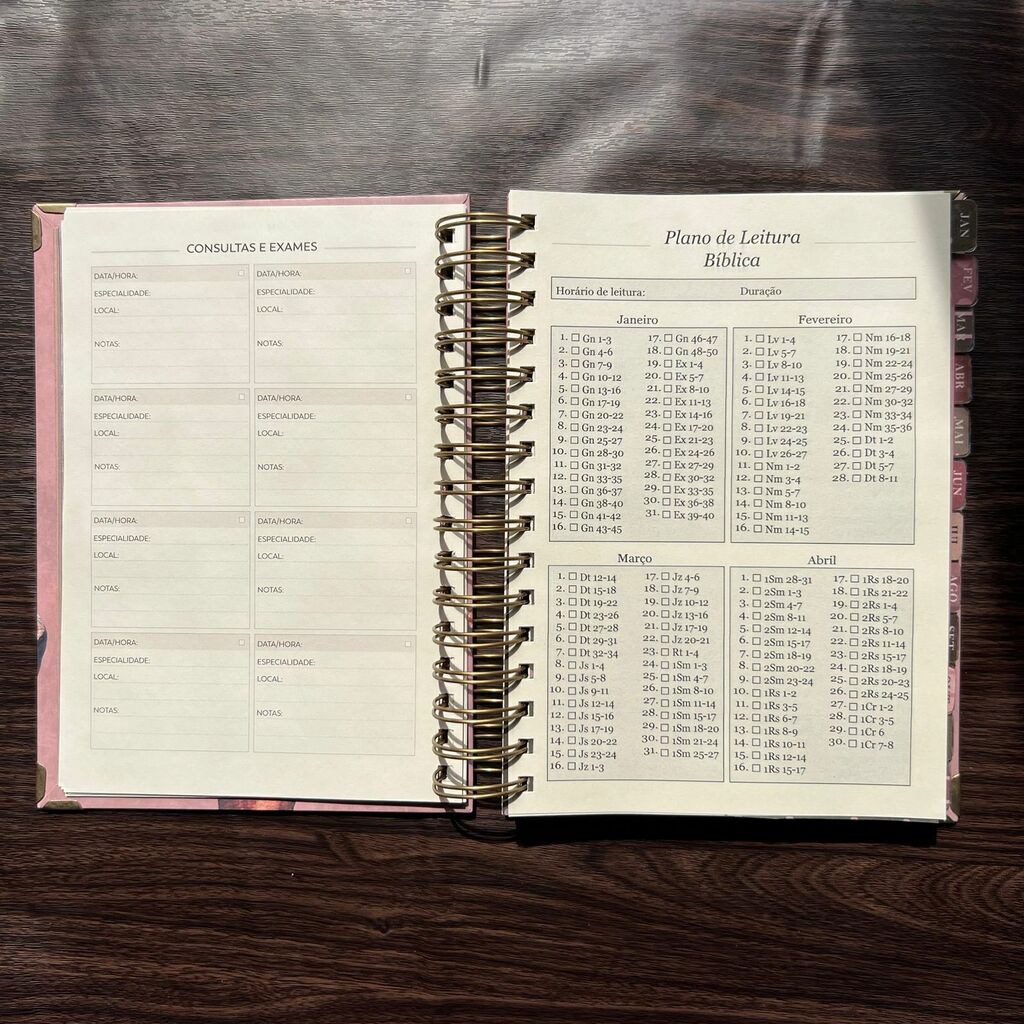 CONSULTAS E EXAMES
DATA/HORA:
ESPECIALIDADE:
LOCAL:
NOTAS:
DATA/HORA:
ESPECIALIDADE:
LOCAL:
NOTAS:
DATA/HORA:
ESPECIALIDADE:
LOCAL:
NOTAS:
DATA/HORA:
ESPECIALIDADE:
LOCAL:
NOTAS:
DATA/HORA:
ESPECIALIDADE:
LOCAL:
NOTAS:
DATA/HORA:
ESPECIALIDADE:
LOCAL:
NOTAS:
DATA/HORA:
ESPECIALIDADE:
LOCAL:
NOTAS:
DATA/HORA:
ESPECIALIDADE:
LOCAL:
NOTAS:
Plano de Leitura
Bíblica
Horário de leitura: Duração
Janeiro
1. Gn 1-3
2. Gn 4-6
3. Gn 7-9
4. Gn 10-12
5. Gn 13-16
6. Gn 17-19
7. Gn 20-22
8. Gn 23-24
9. Gn 25-27
10. Gn 28-30
11. Gn 31-32
12. Gn 33-35
13. Gn 36-37
14. Gn 38-40
15. Gn 41-42
16. Gn 43-45
17. Gn 46-47
18. Gn 48-50
19. Ex 1-4
20. Ex 5-7
21. Ex 8-10
22. Ex 11-13
23. Ex 14-16
24. Ex 17-20
25. Ex 21-23
26. Ex 24-26
27. Ex 27-29
28. Ex 30-32
29. Ex 33-35
30. Ex 36-38
31. Ex 39-40
Fevereiro
1. Lv 1-4
2. Lv 5-7
3. Lv 8-10
4. Lv 11-13
5. Lv 14-15
6. Lv 16-18
7. Lv 19-21
8. Lv 22-23
9. Lv 24-25
10. Lv 26-27
11. Nm 1-2
12. Nm 3-4
13. Nm 5-7
14. Nm 8-10
15. Nm 11-13
16. Nm 14-15
17. Nm 16-18
18. Nm 19-21
19. Nm 22-24
20. Nm 25-26
21. Nm 27-29
22. Nm 30-32
23. Nm 33-34
24. Nm 35-36
25. Dt 1-2
26. Dt 3-4
27. Dt 5-7
28. Dt 8-11
Março
1. Dt 12-14
2. Dt 15-18
3. Dt 19-22
4. Dt 23-26
5. Dt 27-28
6. Dt 29-31
7. Dt 32-34
8. Js 1-4
9. Js 5-8
10. Js 9-11
11. Js 12-14
12. Js 15-16
13. Js 17-19
14. Js 20-22
15. Js 23-24
16. Jz 1-3
17. Jz 4-6
18. Jz 7-9
19. Jz 10-12
20. Jz 13-16
21. Jz 17-19
22. Jz 20-21
23. Rt 1-4
24. 1Sm 1-3
25. 1Sm 4-7
26. 1Sm 8-10
27. 1Sm 11-14
28. 1Sm 15-17
29. 1Sm 18-20
30. 1Sm 21-24
31. 1Sm 25-27
Abril
1. 1Sm 28-31
2. 2Sm 1-3
3. 2Sm 4-7
4. 2Sm 8-11
5. 2Sm 12-14
6. 2Sm 15-17
7. 2Sm 18-19
8. 2Sm 20-22
9. 2Sm 23-24
10. 1Rs 1-2
11. 1Rs 3-5
12. 1Rs 6-7
13. 1Rs 8-9
14. 1Rs 10-11
15. 1Rs 12-14
16. 1Rs 15-17
17. 1Rs 18-20
18. 1Rs 21-22
19. 2Rs 1-4
20. 2Rs 5-7
21. 2Rs 8-10
22. 2Rs 11-14
23. 2Rs 15-17
24. 2Rs 18-19
25. 2Rs 20-23
26. 2Rs 24-25
27. 1Cr 1-2
28. 1Cr 3-5
29. 1Cr 6
30. 1Cr 7-8
JAN
FEV
MAR
ABR
MAI
JUN
JUL
AGO
SET